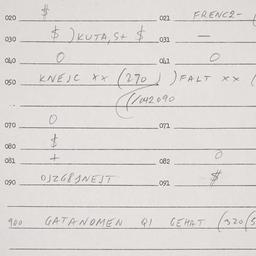 020 $ 021 FRENC2-
030 $ ) KUTA, S+ $ 031 —
040 0 041 0
050 KNEJC xx (270 ) ) FALT xx (
070 0 071
080 $
081 + 082 0
090 091 $
900 GATANOMEN QI GEHRT (320/5